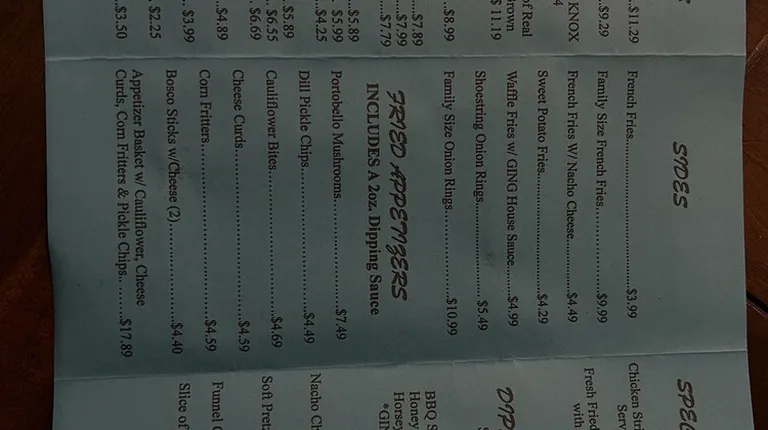 $11.29
$9.29
KNOX
of Real
$ 11.19
$8.99
$7.89
$7.99
$7.79
$5.89
$5.99
$4.25
$5.89
$6.55
$6.69
$4.89
$3.99
$2.25
$3.50
SIDES
French Fries $3.99
Family Size French Fries $9.99
French Fries W/ Nacho Cheese $4.49
Sweet Potato Fries $4.29
Waffle Fries w/ GING House Sauce $4.99
Shoestring Onion Rings $5.49
Family Size Onion Rings $10.99
FRIED APPETIZERS
INCLUDES A 2oz. Dipping Sauce
Portobello Mushrooms $7.49
Dill Pickle Chips $4.49
Cauliflower Bites $4.69
Cheese Curds $4.59
Corn Fritters $4.59
Bosco Sticks w/Cheese (2) $4.40
Appetizer Basket w/ Cauliflower, Cheese
Curds, Corn Fritters & Pickle Chips $17.89
SPEC
Chicken Stri
Serv
Fresh Fried
with
DIP
BBQ S
Honey
Horsey
*GIN
Nacho Ch
Soft Pretz
Funnel C
Slice of